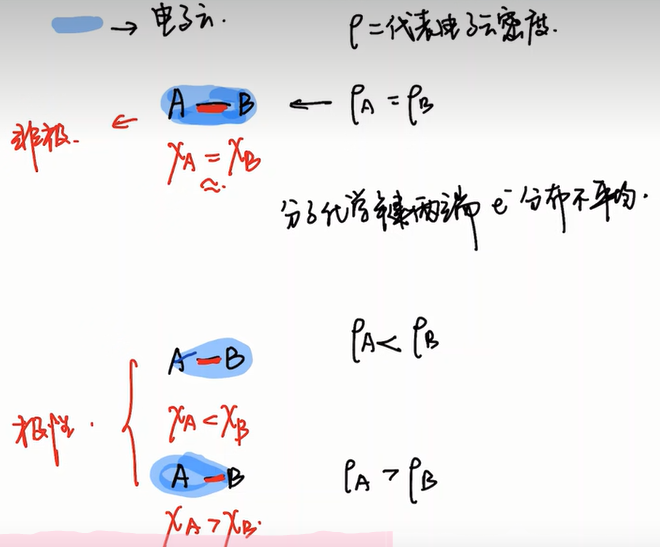 → 电子云.
ρ=代表电子云密度.
非极. ← A — B ← ρA = ρB
χA = χB
≈.
分子化学键两端 e⁻ 分布不平均.
A — B ρA < ρB
极性. { χA < χB
A — B ρA > ρB
χA > χB.